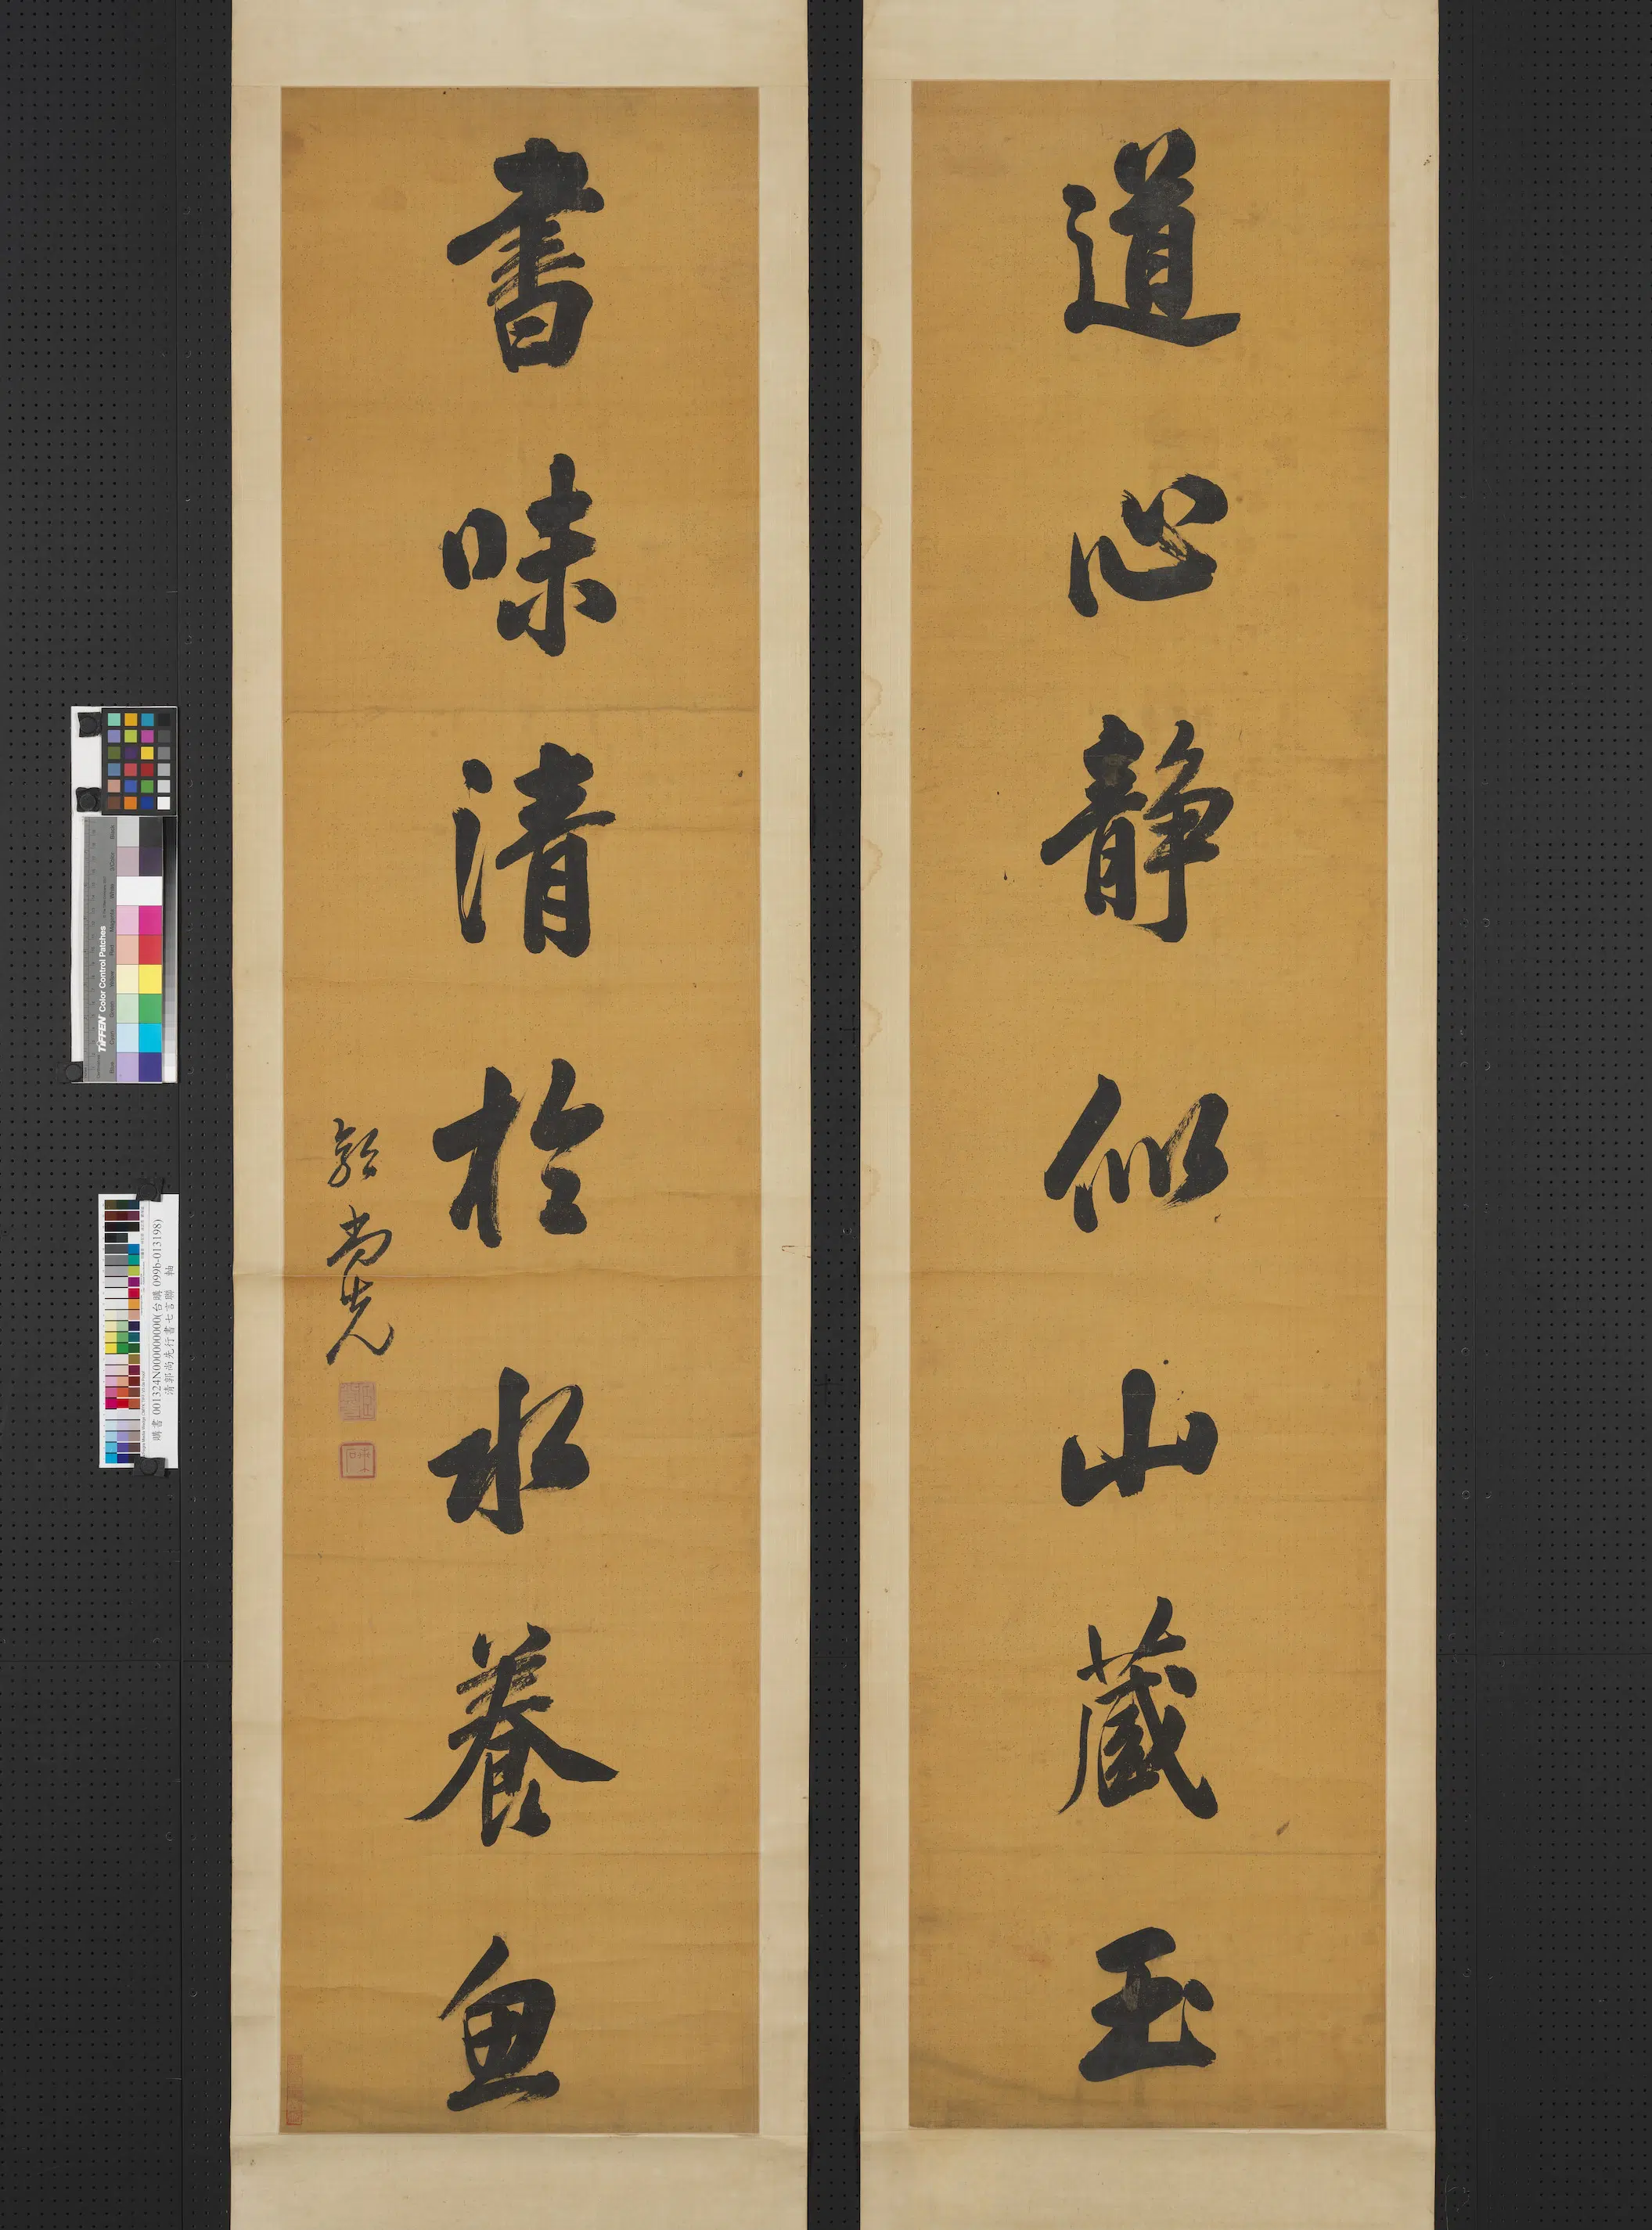 道心靜似山藏玉
書味清於水養魚
郭尚先
購書 001324N000000000(台購 099b-013198)
清郭尚先行書七言聯 軸
TIFFEN Color Control Patches